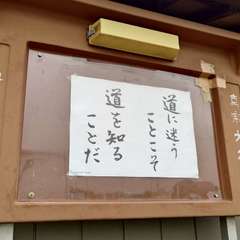 道に迷う
ことこそ
道を知る
ことだ